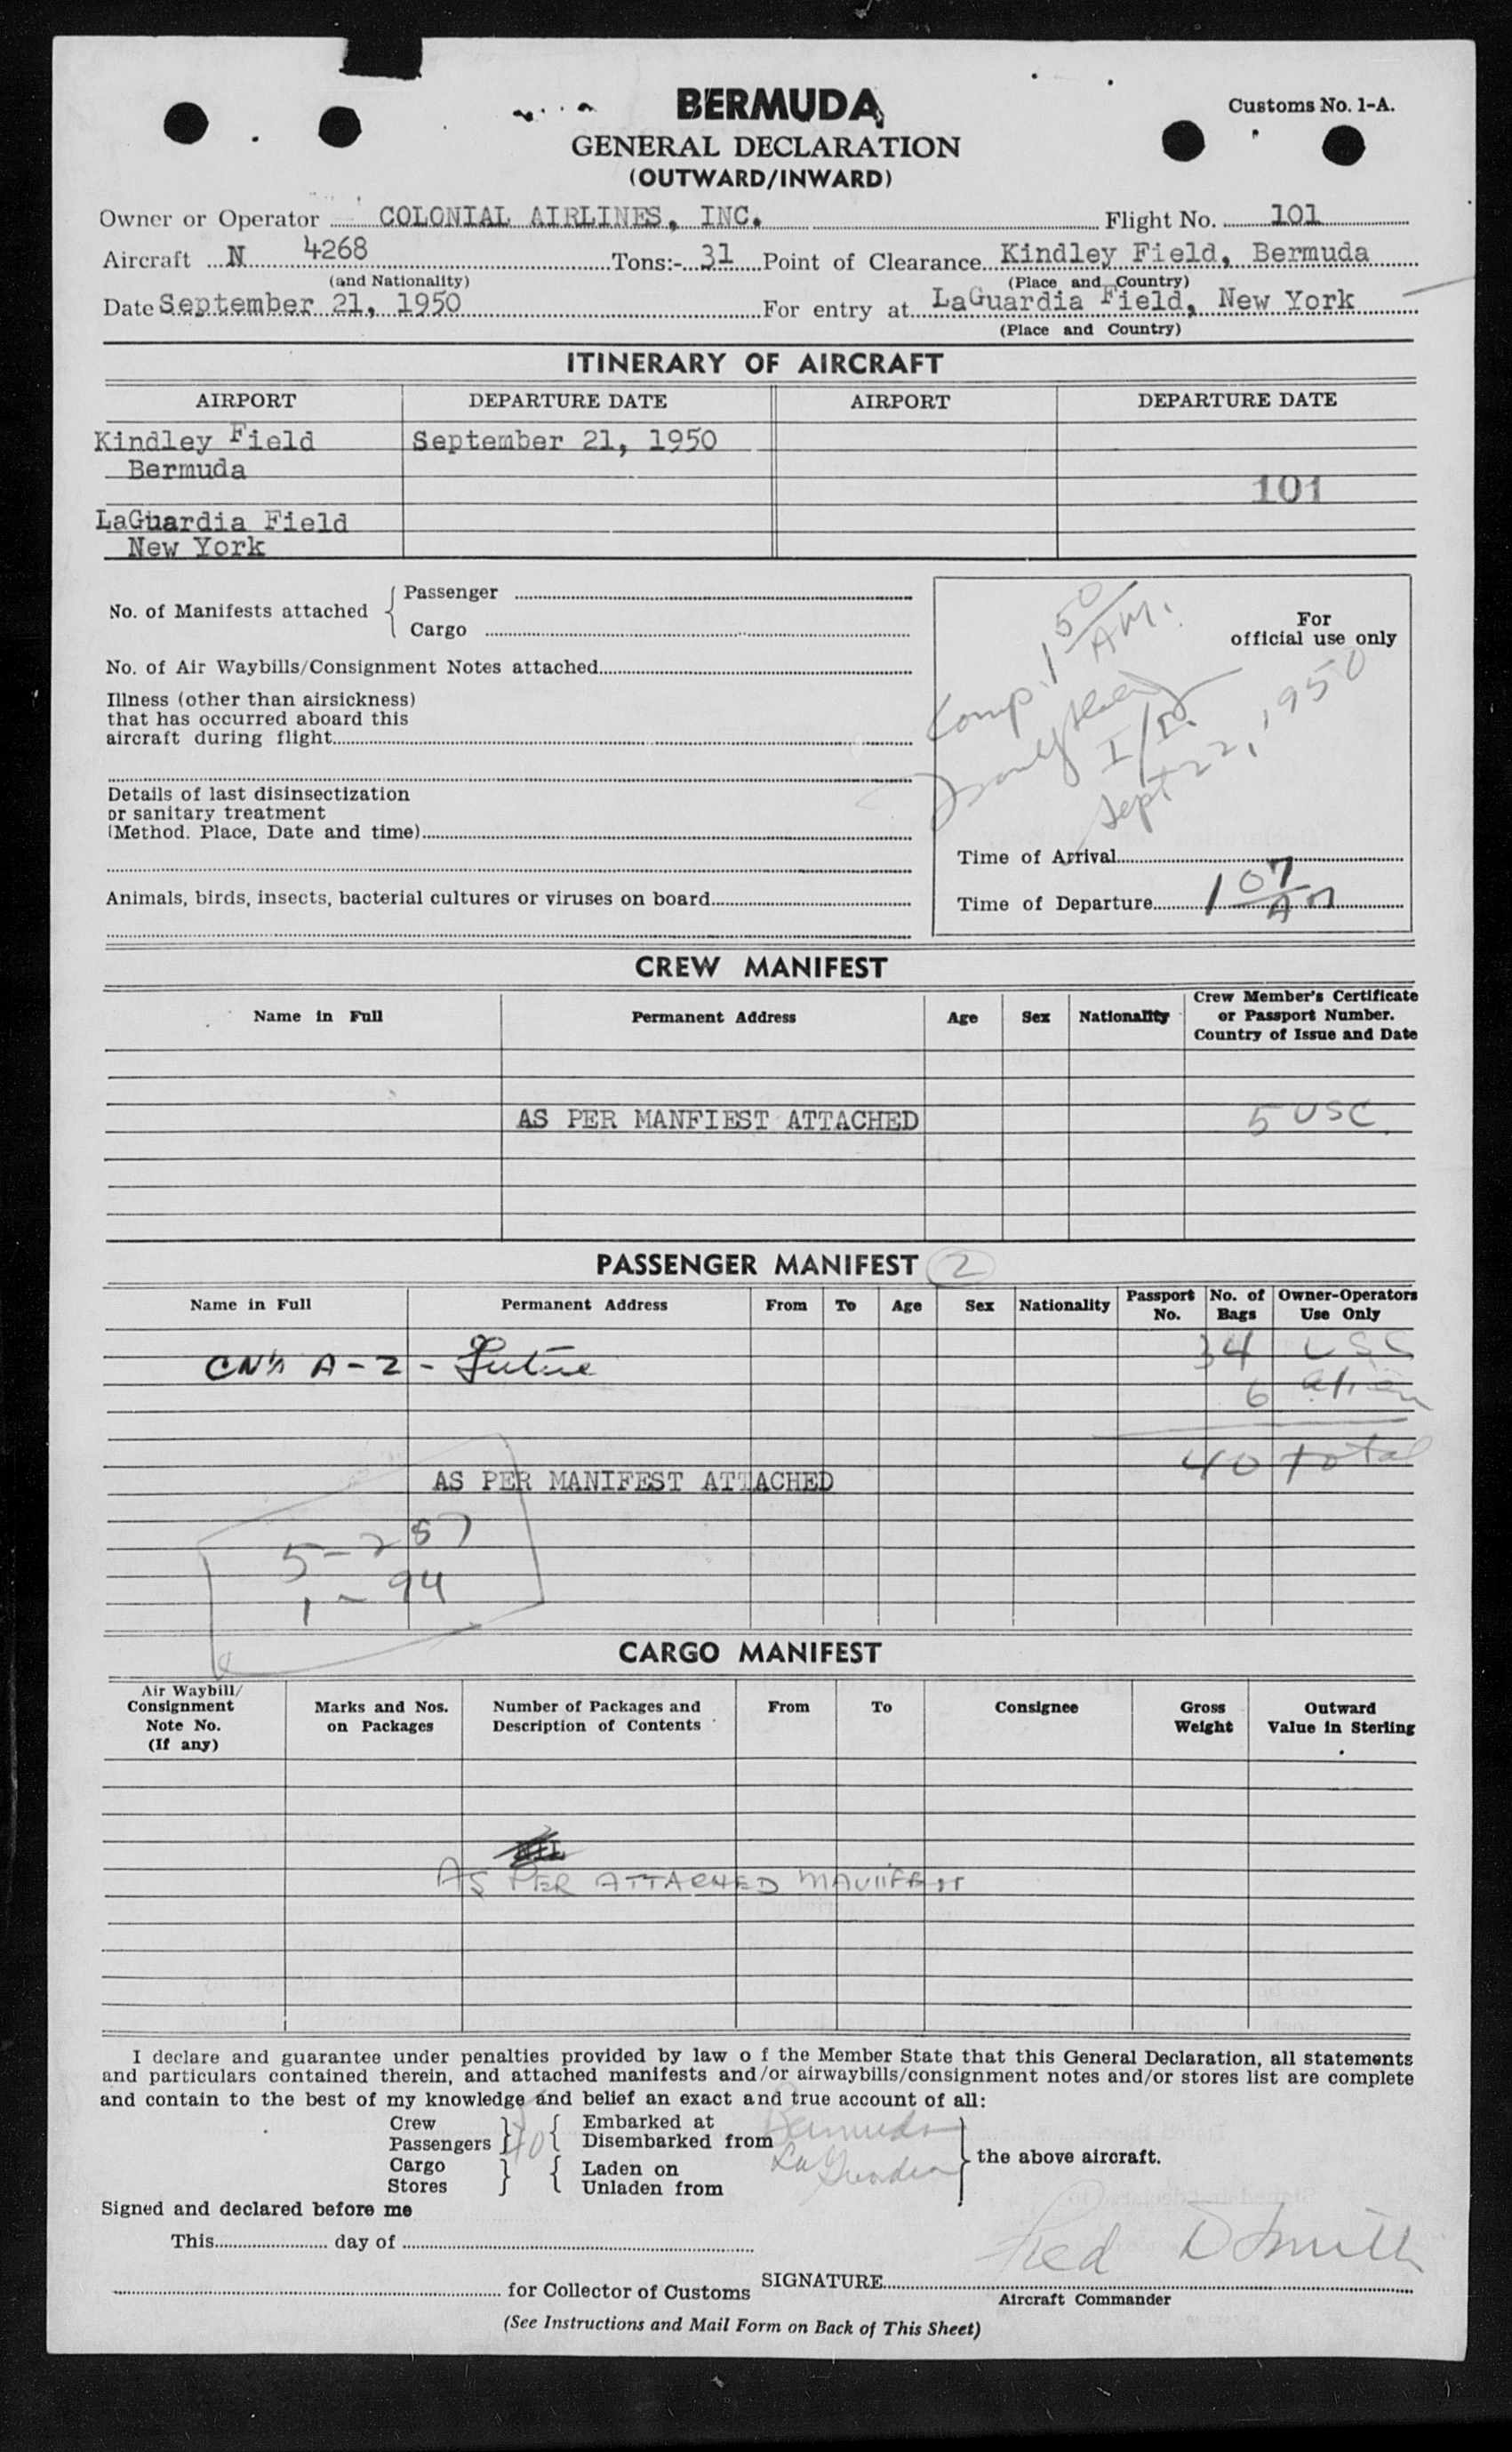 BERMUDA
Customs No. 1-A.
GENERAL DECLARATION
(OUTWARD/INWARD)
Owner or Operator COLONIAL AIRLINES, INC. Flight No. 101
Aircraft N 4268 Tons:- 31 Point of Clearance Kindley Field, Bermuda
(and Nationality) (Place and Country)
Date September 21, 1950 For entry at LaGuardia Field, New York
(Place and Country)
ITINERARY OF AIRCRAFT
AIRPORT DEPARTURE DATE AIRPORT DEPARTURE DATE
Kindley Field September 21, 1950
Bermuda
101
LaGuardia Field
New York
No. of Manifests attached { Passenger
Cargo
No. of Air Waybills/Consignment Notes attached
Illness (other than airsickness)
that has occurred aboard this
aircraft during flight
Details of last disinsectization
or sanitary treatment
(Method. Place, Date and time)
Animals, birds, insects, bacterial cultures or viruses on board
For
official use only
Comp. 1 50/AM.
I/I.
Sept 22, 1950
Time of Arrival
Time of Departure 1 07/AM
CREW MANIFEST
Name in Full Permanent Address Age Sex Nationality Crew Member's Certificate
or Passport Number.
Country of Issue and Date
AS PER MANFIEST ATTACHED 5 USC
PASSENGER MANIFEST 2
Name in Full Permanent Address From To Age Sex Nationality Passport No. No. of Bags Owner-Operators Use Only
34 USC
A-2 -
6 alien
40 total
AS PER MANIFEST ATTACHED
5-257
1-94
CARGO MANIFEST
Air Waybill/
Consignment
Note No.
(If any)
Marks and Nos.
on Packages
Number of Packages and
Description of Contents
From To Consignee
Gross
Weight
Outward
Value in Sterling
AS PER ATTACHED MANIFEST
I declare and guarantee under penalties provided by law o f the Member State that this General Declaration, all statements
and particulars contained therein, and attached manifests and/or airwaybills/consignment notes and/or stores list are complete
and contain to the best of my knowledge and belief an exact and true account of all:
Crew } { Embarked at Bermuda
Passengers } 40 { Disembarked from LaGuardia
Cargo } { Laden on
Stores } { Unladen from
} the above aircraft.
Signed and declared before me
This day of
for Collector of Customs
SIGNATURE Fred D Smith
Aircraft Commander
(See Instructions and Mail Form on Back of This Sheet)